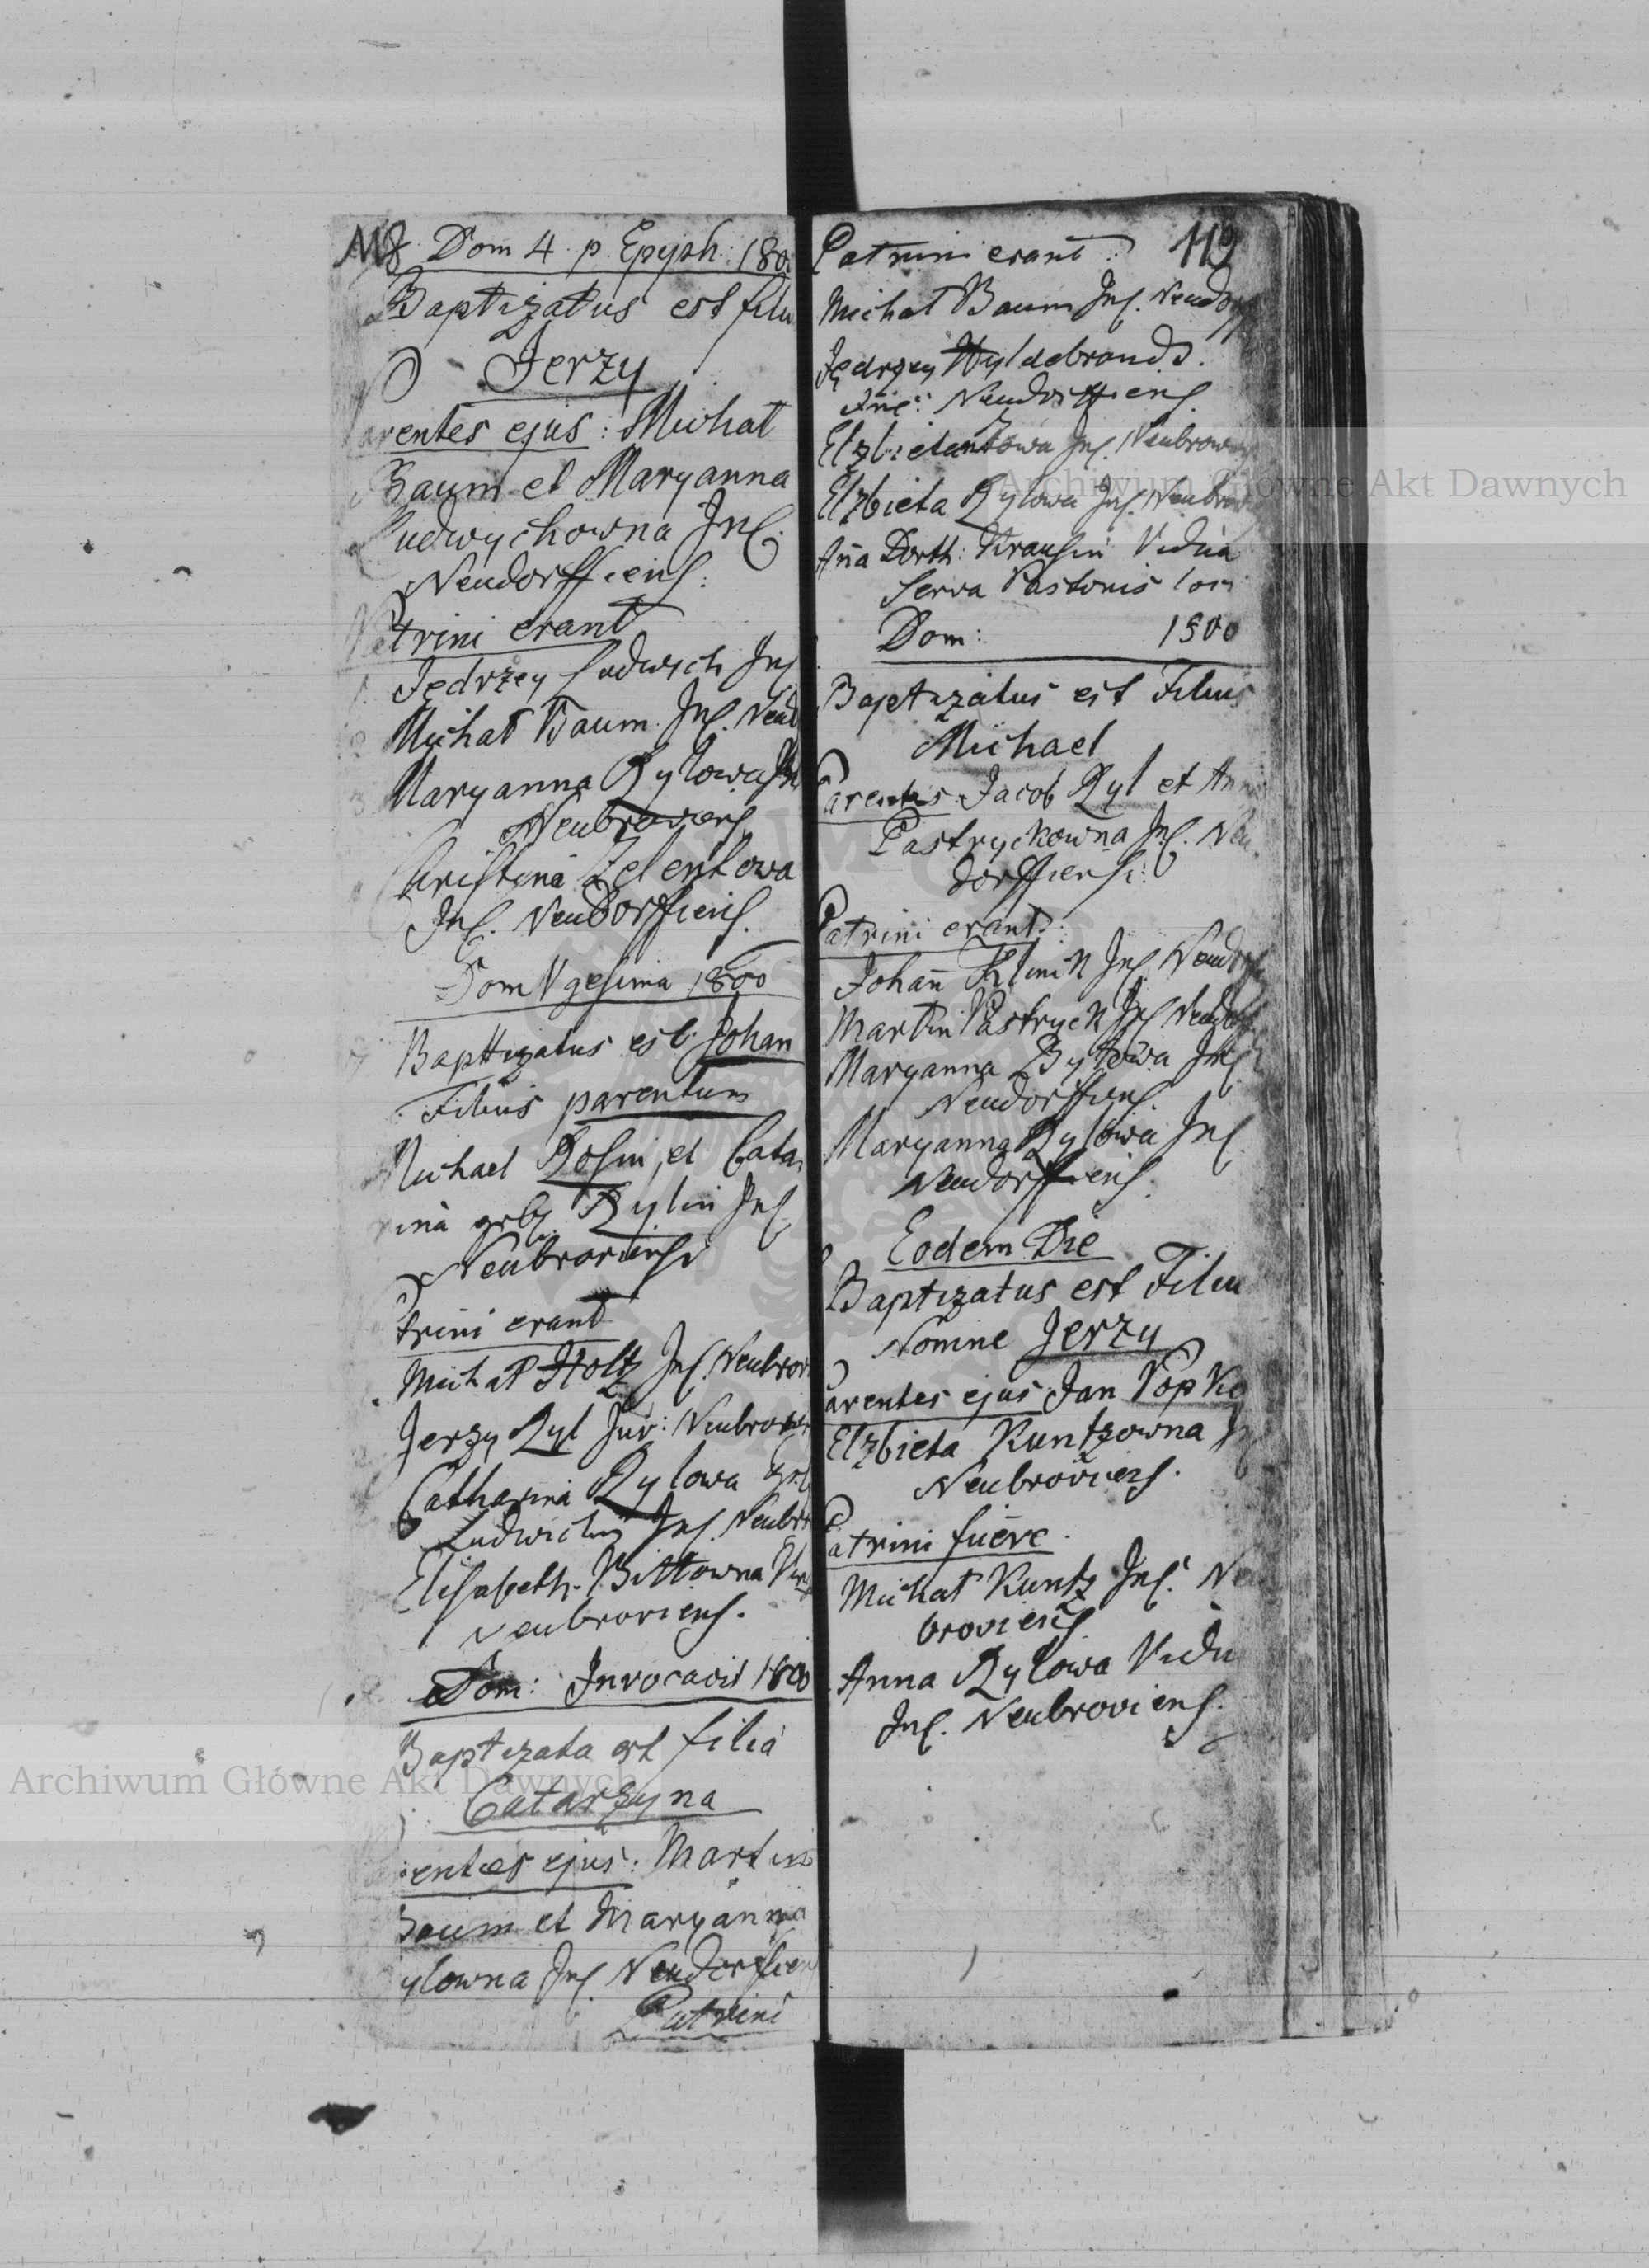 118 Dom 4. p. Epyph: 180
Baptizatus est filu
Jerzy
arentes ejus: Michał
Baum et Maryanna
Ludwychowna Inq.
Neudorffiens:
Patrini erant
1. Jędrzey Ludwich Inq
2. Michał Baum. Inq. Neud
3. Maryanna Rylowa Inq
Neubroviens
Christina Zelentowa
Inq. Neudorffiens.
Dom Vgesima 1800
Baptizatus est Johan
Filius parentum
Michael Rosin et Cata
rina geb. Rylin Inq
Neubroviensi
trini erant
Michał Holtz Inq. Neubrov
Jerzy Ryl Juv: Neubrov
Catharina Rylowa Inq
Ludwichny Inq. Neubr
Elisabeth. Bittowna Virg
Neubroviens.
Dom: Invocavit 1800
Baptizata est filia
Catarzyna
entes ejus: Martin
Baum et Maryanna
ylowna Inq. Neudorffien
Patrini
Patrini erant: 119
Michał Baum Inq. Neudorff
Jędrzey Hyldebrand.
Inq: Neudorffiens.
Inq. Neubrov
Elzbieta Rylowa Inq. Neubrov
Aña Dorth: Krausin Vidua
Serva Pastoris loci
Dom: 1800
Baptizatus est Filius
Michael
Parentes Jacob Ryl et Anna
Pastryckowna Inq. Neu
dorffiensi:
Patrini erant:
Johañ Klinik Inq Neudorff
Martin Pastryck Inq Neudorff
Maryanna Bytowa Inq
Neudorffiens.
Maryanna Rylowa Inq
Neudorffiens.
Eodem Die
Baptizatus est Filiu
Nomine Jerzy
Parentes ejus Jan Popke
Elzbieta Kuntzowna
Neubroviens.
Patrini fuere.
Michał Kuntz Inq. Ne
broviens
Anna Rylowa Vidu
Inq. Neubroviens.
Archiwum Główne Akt Dawnych
Archiwum Główne Akt Dawnych